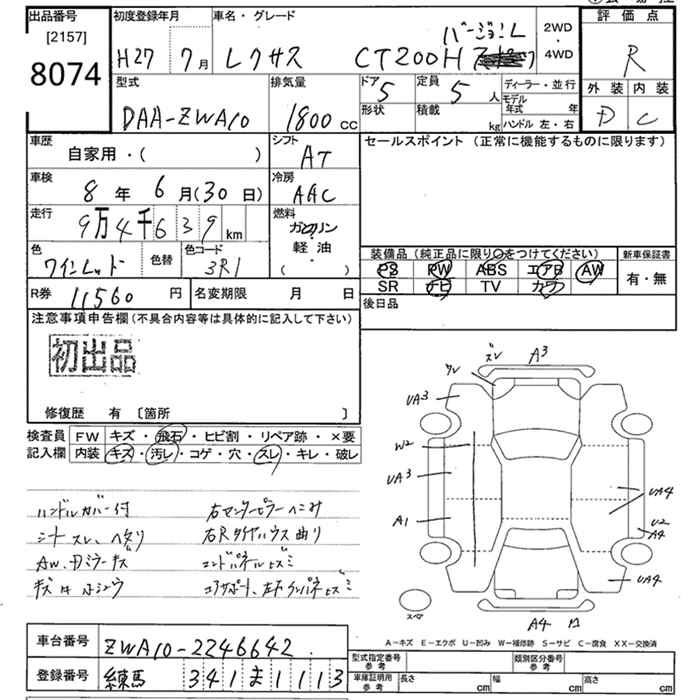 出品番号
[2157]
8074
初度登録年月
H27 7月
車名・グレード
レクサス CT200H バージョンL
2WD
・
4WD
評価点
R
外装 内装
D C
型式
DAA-ZWA10
排気量
1800 cc
ドア 5
形状
定員 5 人
積載 kg
ディーラー・並行
モデル年式 年
ハンドル 左・右
車歴
自家用・( )
シフト
AT
車検
8年 6月(30日)
冷房
AAC
走行
9万4千639km
燃料
ガソリン
・
軽油
( )
色
ワインレッド
色替
色コード
3R1
R券 11560 円
名変期限 月 日
セールスポイント (正常に機能するものに限ります)
装備品(純正品に限り○をつけてください)
新車保証書
PS PW ABS エアB AW
SR ナビ TV カワ
有・無
後日品
注意事項申告欄(不具合内容等は具体的に記入して下さい)
初出品
修復歴 有 [箇所 ]
検査員
記入欄
FW キズ・飛石・ヒビ割・リペア跡・×要
内装 キズ・汚レ・コゲ・穴・スレ・キレ・破レ
ハンドルカバー付
シートスレ、ヘタリ
AW、Fミラーキズ
右センターピラーヘコミ
右Rタイヤハウス曲り
エンドパネルヒズミ
ズレ
A3
UA3
W2
UA3
A1
UA4
U2
A4
UA4
スペア
A4
A-キズ E-エクボ U-凹み W-補修跡 S-サビ C-腐食 XX-交換済
車台番号 ZWA10-2246642
登録番号 練馬 341 ま 1113
型式指定番号
参考
類別区分番号
参考
車庫証明用
参考
長さ cm 幅 cm 高さ cm